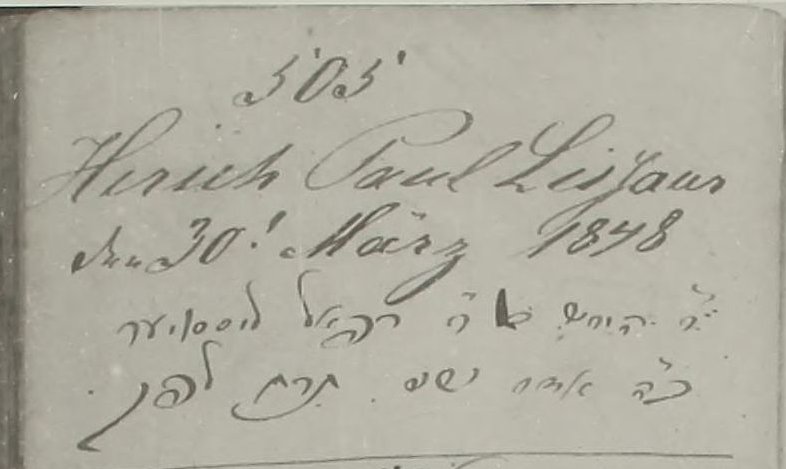 505
Hirsch Paul Lissaur
den 30t März 1848
הירש רפאל ליססויער
כ״ה אדר שני תרח לפק